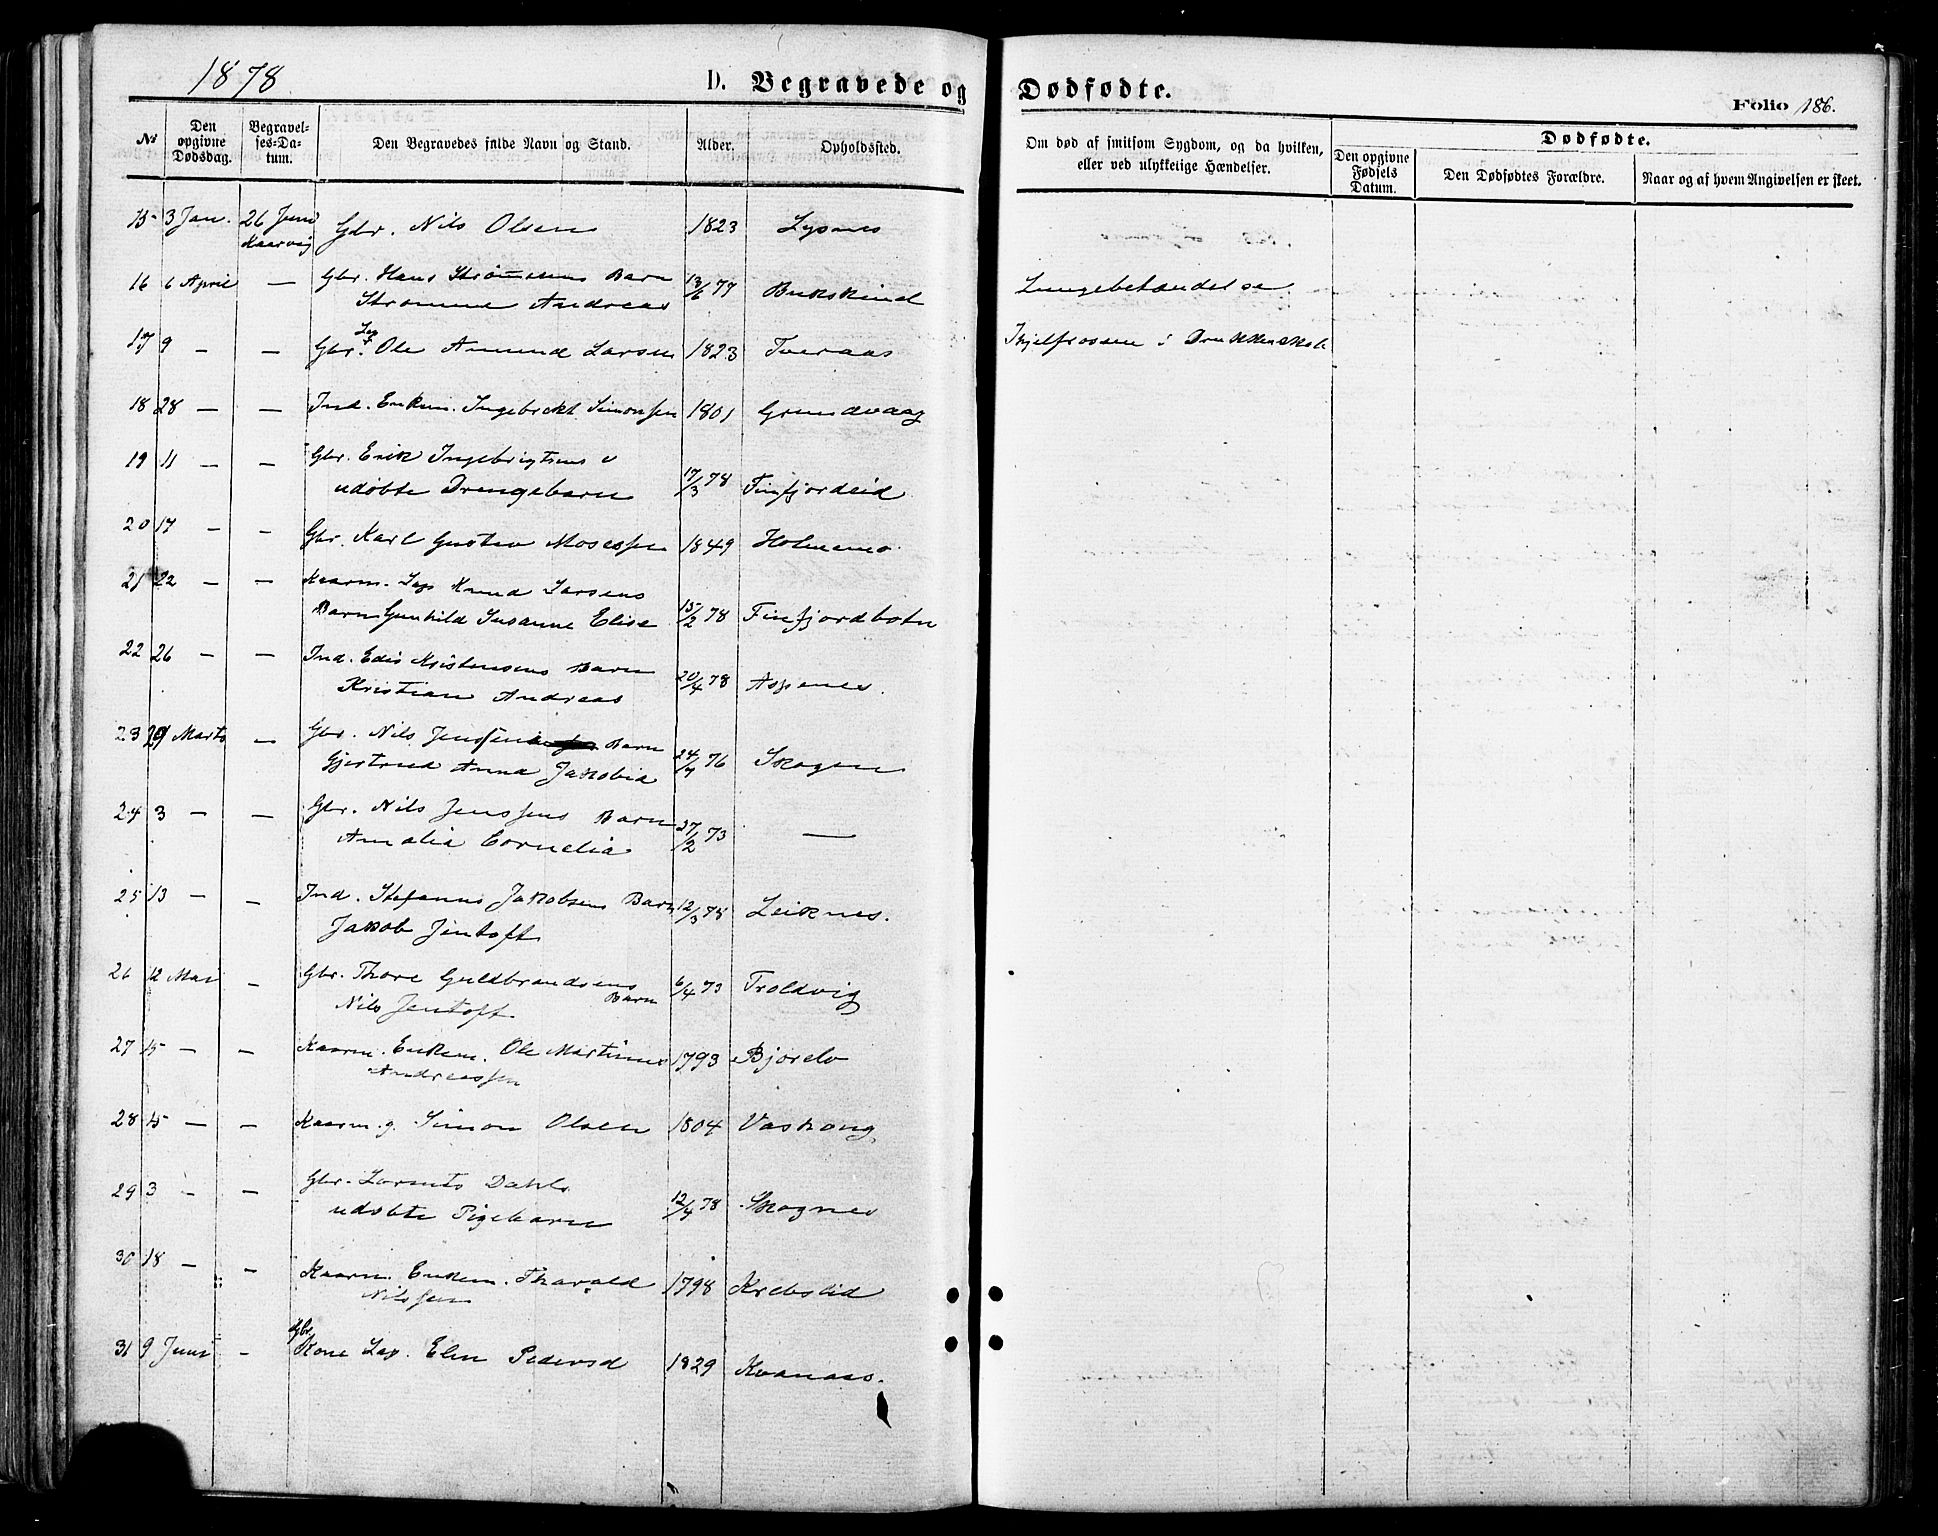 1878
D. Begravede og Dødfødte.
Folio 186.
No
Den opgivne Dødsdag.
Begravel-ses-Da-tum.
Den Begravedes fulde Navn og Stand.
Alder.
Opholdssted.
Om død af smitsom Sygdom, og da hvilken, eller ved ulykkelige Hændelser.
Dødfødte.
Den opgivne Fødsels Datum.
Den Dødfødtes Forældre.
Naar og af hvem Angivelsen er skeet.
15 3 Jan. 26 Juni Gbr. Nils Olsen 1823 Lysnes
Kaarvig
16 6 April — Gbr. Hans Strømmesens Barn 13/6 77 Bukskind Lungebetændelse
Strømme Andreas
17 9 — — Gbr. Lap Ole Amund Larsen 1823 Tveraas Ihjelfrossen i Drukkenskab
18 28 — — Ind. Enkem. Ingebrekt Simonsen 1801 Grundvaag
19 11 — — Gbr. Erik Ingebrigtsens
udøbte Drengebarn 17/3 78 Finfjordeid
20 17 — — Gbr. Karl Gustav Mosessen 1849 Holmenes
21 22 — — Kaarm. Lap Knud Larsens
Barn Gunhild Susanne Elise 15/2 78 Finfjordbotn
22 26 — — Ind. Edis Kristensens Barn
Kristian Andreas 20/4 78 Aspenes.
23 29 Marts — Gbr. Nils Jenssens Barn
Gjertrud Anna Jakobia 24/7 76 Skogen
24 3 — — Gbr. Nils Jenssens Barn
Amalia Cornelia 27/2 73 —
25 13 — — Ind. Stefanus Jakobsens Barn 12/3 78 Leiknes.
Jakob Jentoft
26 12 Mai — Gbr. Thore Guldbrandsens 6/4 73 Troldvig
Barn
Nils Jentoft
27 15 — — Kaarm. Enkem. Ole Martinus 1793 Bjorelv
Andreassen
28 15 — — Kaarm. g. Simon Olsen 1804 Vashaug
29 3 — — Gbr. Lorents Dahls
udøbte Pigebarn 12/4 78 Skognes
30 18 — — Kaarm. Enkem. Tharald 1798 Krebslid
Nilssen
31 9 Juni — Gbr Kone Lap. Elen Pedersd 1829 Kvanaas.